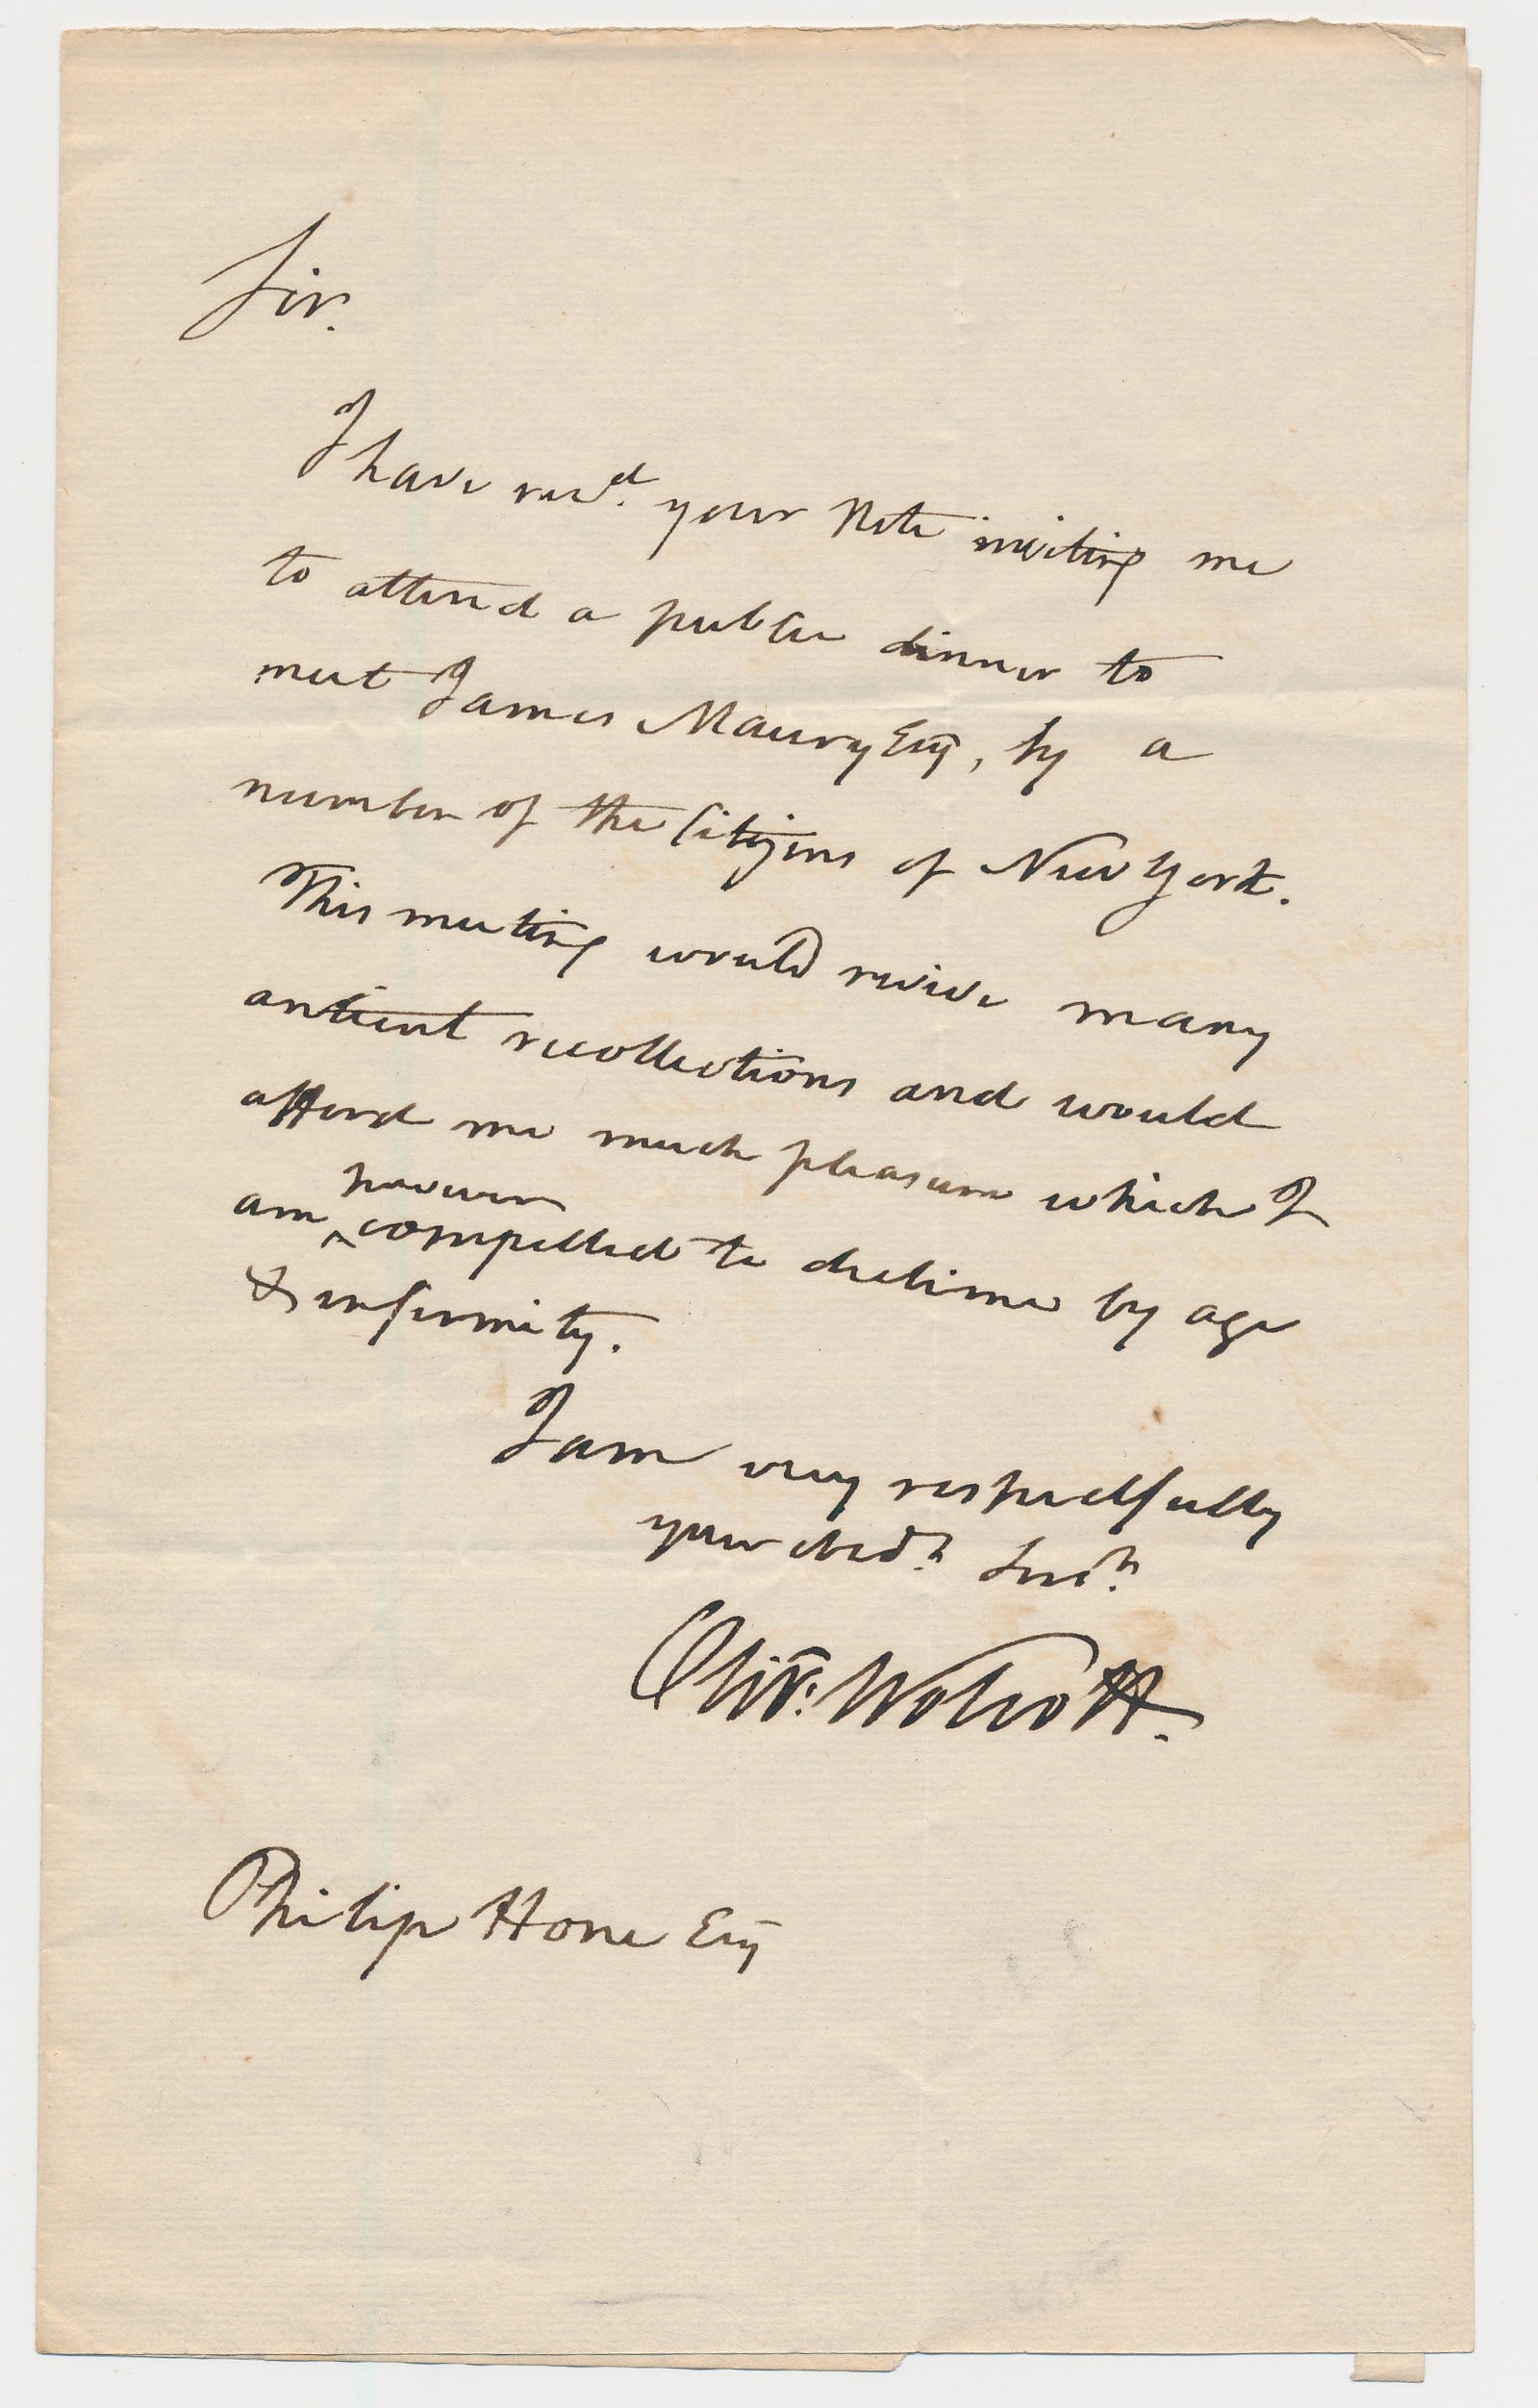 Sir.
I have recd. your Note inviting me
to attend a public dinner to
meet James Maury Esq, by a
number of the Citizens of New York.
This meeting would revive many
antient recollections and would
afford me much pleasure which I
however
am ^ compelled to decline by age
& infirmity.
I am very respectfully
your obedt. Servt.
Olivr. Wolcott.
Philip Hone Esq